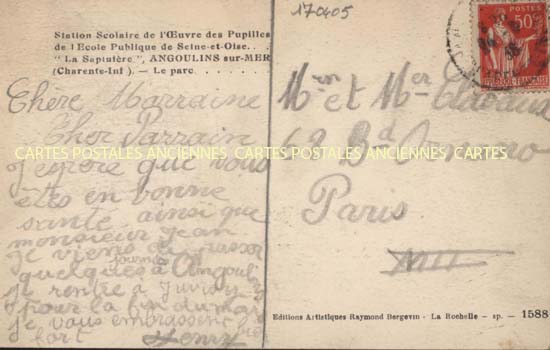 170405
Station Scolaire de l'Œuvre des Pupilles
de l'Ecole Publique de Seine-et-Oise. . .
" La Sapinière ", ANGOULINS sur-MER
(Charente-Inf ). — Le parc . . . . . . .
Chere Marraine
Cher Parrain
j'espère que vous
êtes en bonne
santé ainsi que
monsieur Jean
je viens de passer
quelques journées à Angoul
je rentre à Juvisy
pour la fin du mois
je vous embrassent
fort Henri
POSTES
50c
Mme et Mer
62 Bd
Paris
CARTES POSTALES ANCIENNES CARTES POSTALES ANCIENNES CARTES
Editions Artistiques Raymond Bergevin - La Rochelle - sp. - 1588